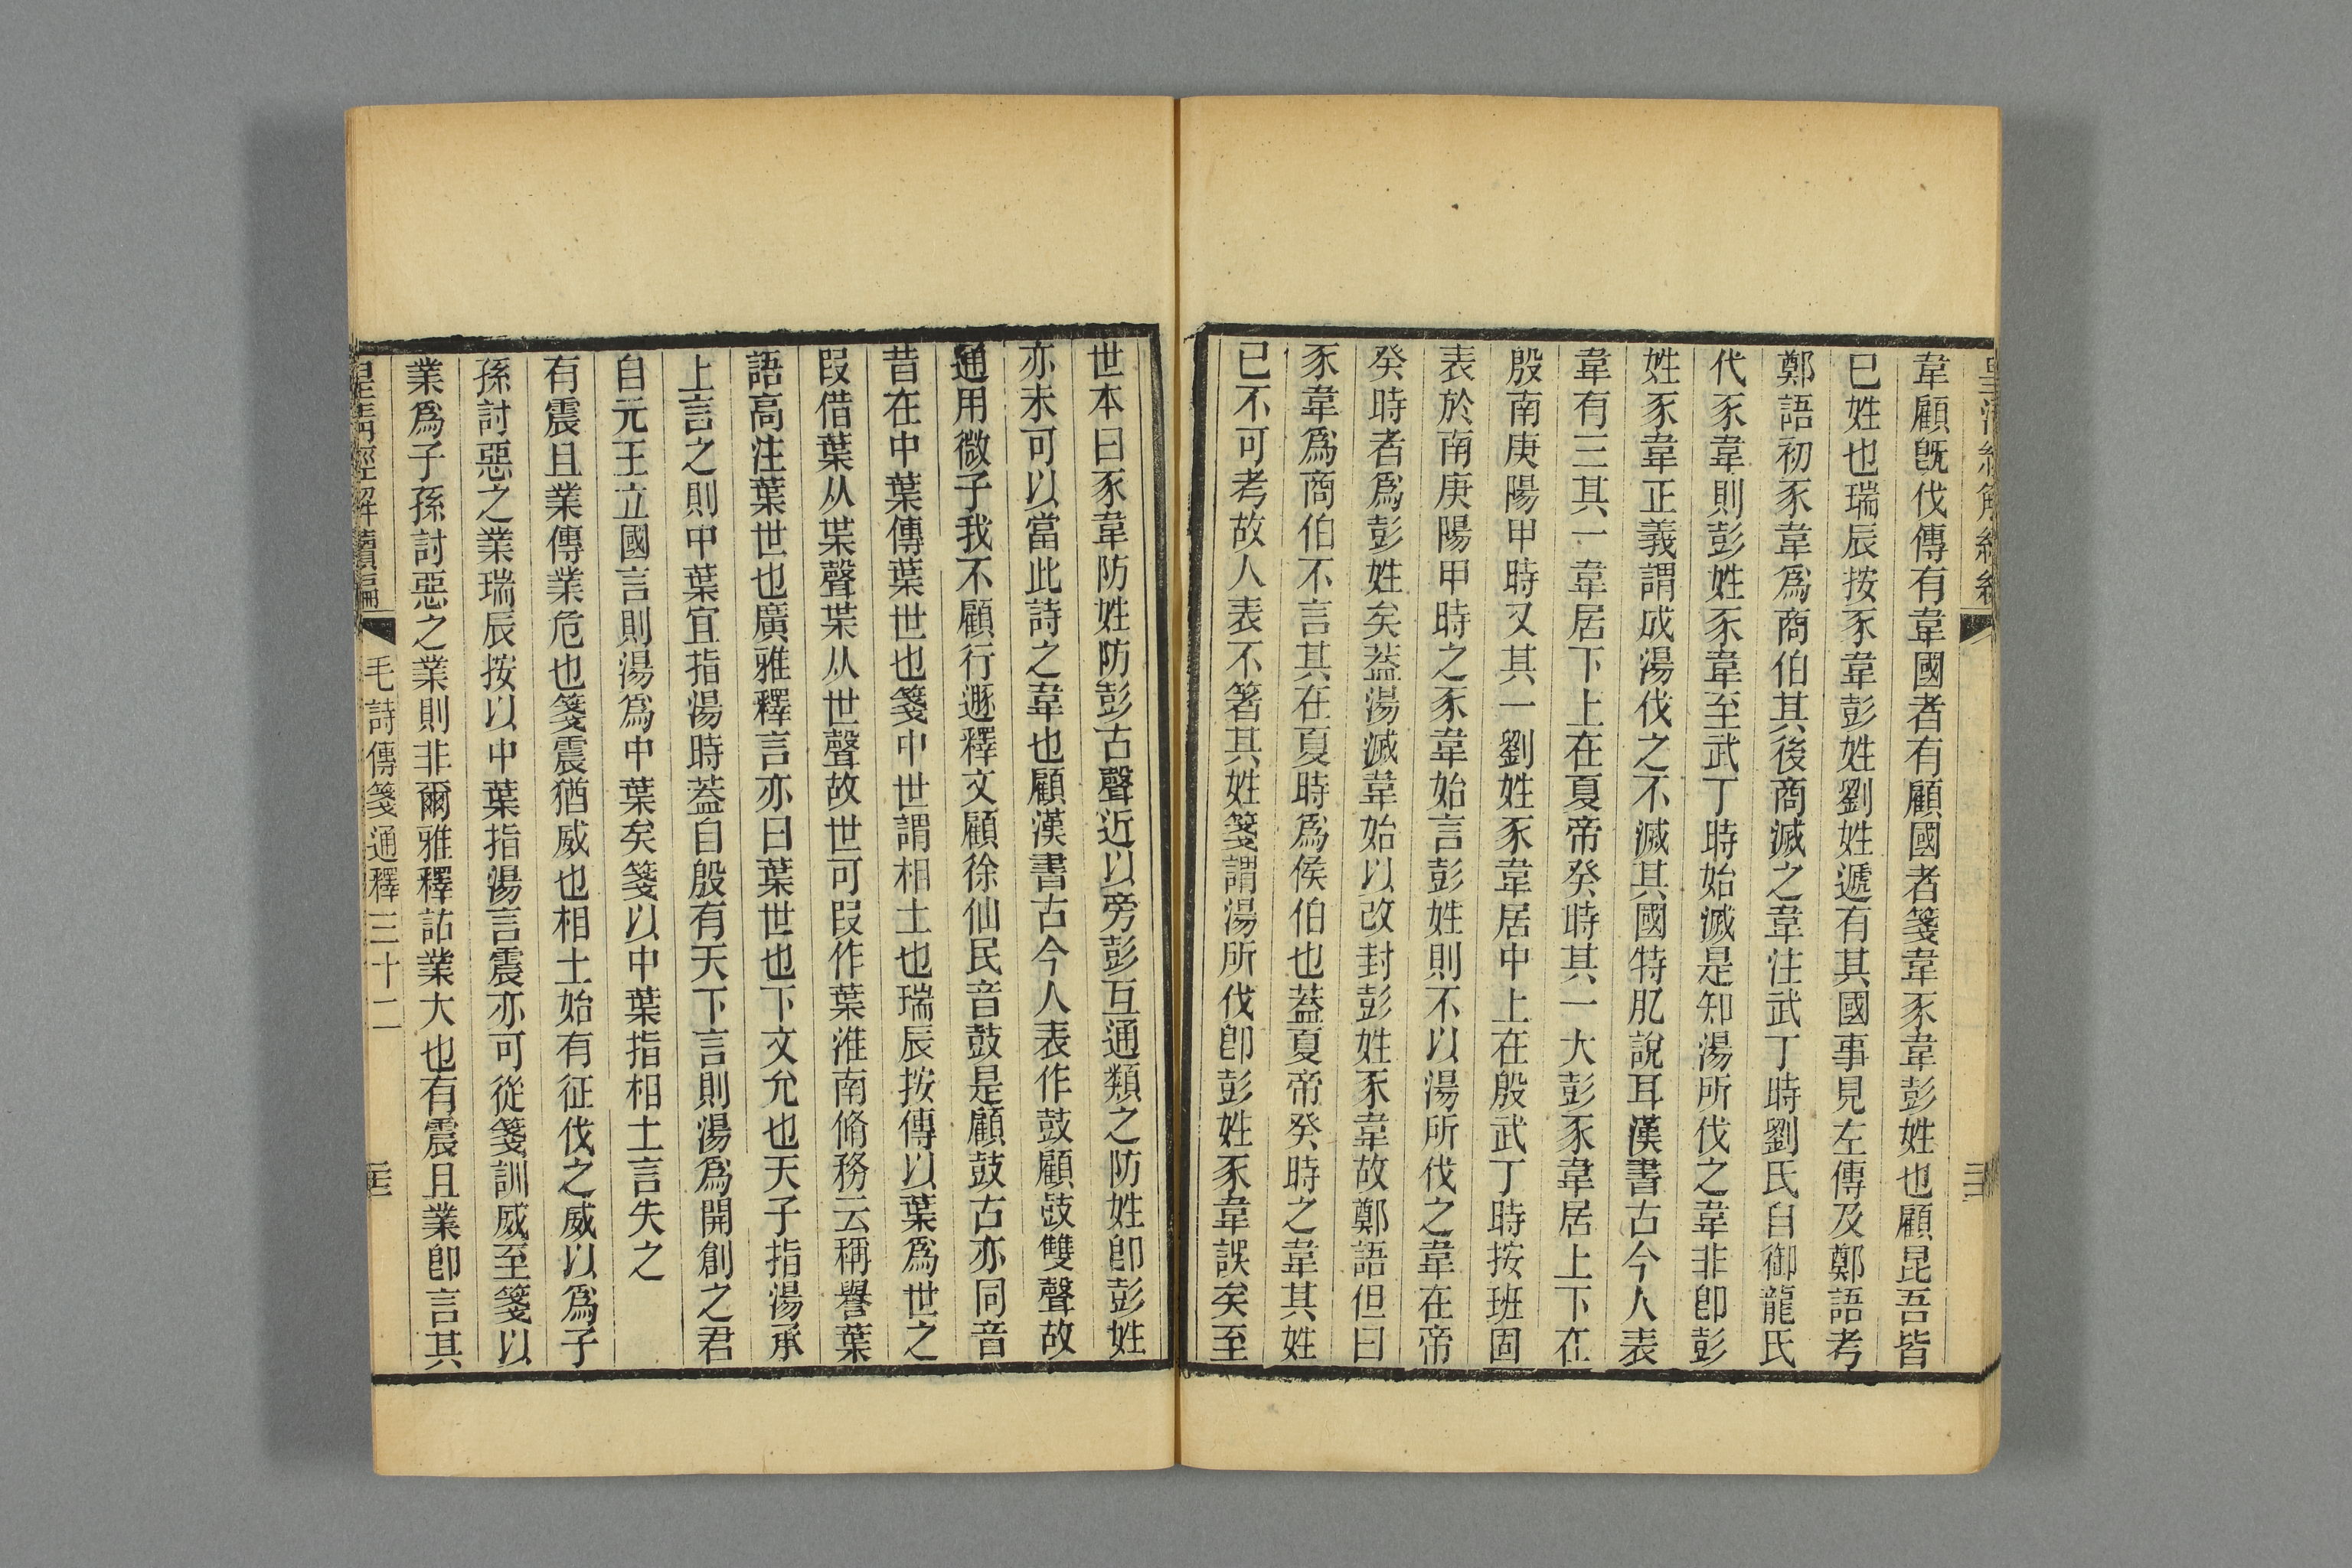 韋顧旣伐傳有韋國者有顧國者箋韋豕韋彭姓也顧昆吾皆
巳姓也瑞辰按豕韋彭姓劉姓遞有其國事見左傳及鄭語考
鄭語初豕韋爲商伯其後商滅之韋注武丁時劉氏自御龍氏
代豕韋則彭姓豕韋至武丁時始滅是知湯所伐之韋非卽彭
姓豕韋正義謂成湯伐之不滅其國特肊說耳漢書古今人表
韋有三其一韋居下上在夏帝癸時其一大彭豕韋居上下在
殷南庚陽甲時又其一劉姓豕韋居中上在殷武丁時按班固
表於南庚陽甲時之豕韋始言彭姓則不以湯所伐之韋在帝
癸時者爲彭姓矣葢湯滅韋始以改封彭姓豕韋故鄭語但曰
豕韋爲商伯不言其在夏時爲侯伯也葢夏帝癸時之韋其姓
已不可考故人表不箸其姓箋謂湯所伐卽彭姓豕韋誤矣至
世本曰豕韋防姓防彭古聲近以旁彭互通類之防姓卽彭姓
亦未可以當此詩之韋也顧漢書古今人表作鼓顧鼓雙聲故
通用微子我不顧行遯釋文顧徐仙民音鼓是顧鼓古亦同音
昔在中葉傳葉世也箋中世謂相土也瑞辰按傳以葉爲世之
叚借葉从枼聲枼从世聲故世可叚作葉淮南脩務云稱譽葉
語高注葉世也廣雅釋言亦曰葉世也下文允也天子指湯承
上言之則中葉宜指湯時葢自殷有天下言則湯爲開創之君
自元王立國言則湯爲中葉矣箋以中葉指相土言失之
有震且業傳業危也箋震猶威也相土始有征伐之威以爲子
孫討惡之業瑞辰按以中葉指湯言震亦可從箋訓威至箋以
業爲子孫討惡之業則非爾雅釋詁業大也有震且業卽言其
皇淸經解續編
毛詩傳箋通釋三十二